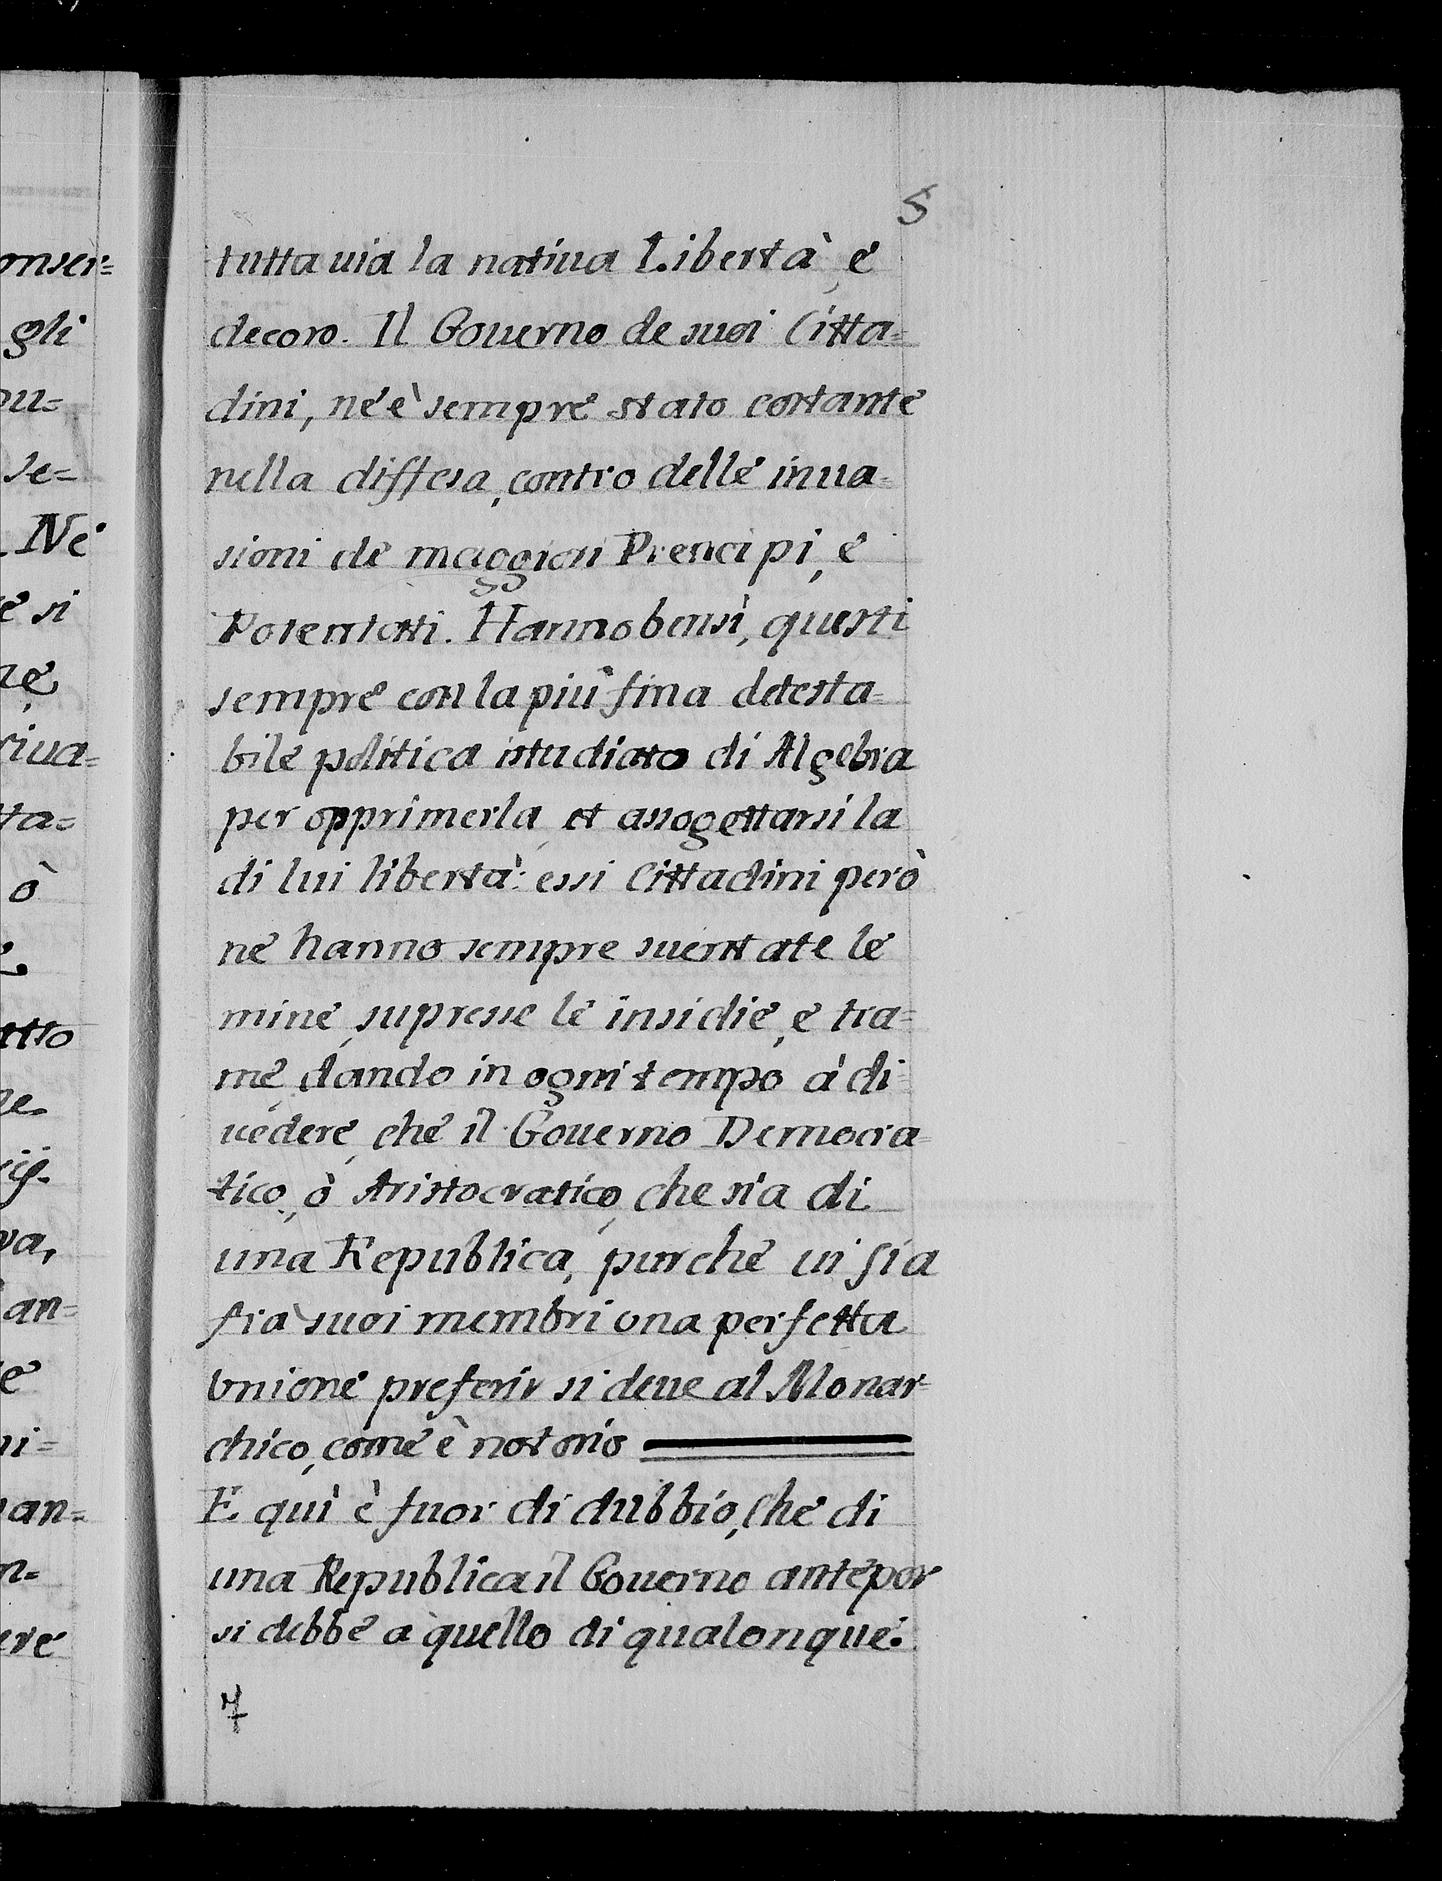 5
onser=
gli
ou=
se=
. Ne
e si
ne,
riua=
tta=
ò
atto
ne.
va,
an=
e
ni=
an=
n=
ere
tutta uia la natiua Libertà, e
decoro. Il Gouerno de suoi Citta=
dini, ne è sempre stato costante
nella diffesa, contro delle inua=
sioni de maggiori Prencipi, e
Potentati. Hanno bensì, questi
sempre con la più fina detesta=
bile politica istudiato di Algebra
per opprimerla, et assogettarsi la
di lui libertà: essi Cittadini però
ne hanno sempre suentate le
mine, supresse le insidie, e tra=
me, dando in ogni tempo à di=
uedere, che il Gouerno Democra=
tico, ò Aristocratico, che sia di
una Republica, purche ui sia
frà suoi membri una perfetta
Vnione preferir si deue al Monar=
chico, come è notorio
E quì è fuor di dubbio, che di
una Republica il Gouerno antepor
si debbe à quello di qualonque.